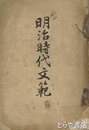 明治時代文範